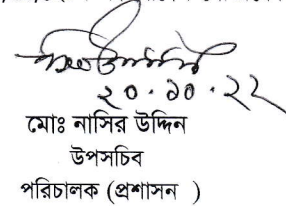 ২০.১০.২২
মোঃ নাসির উদ্দিন
উপসচিব
পরিচালক (প্রশাসন )